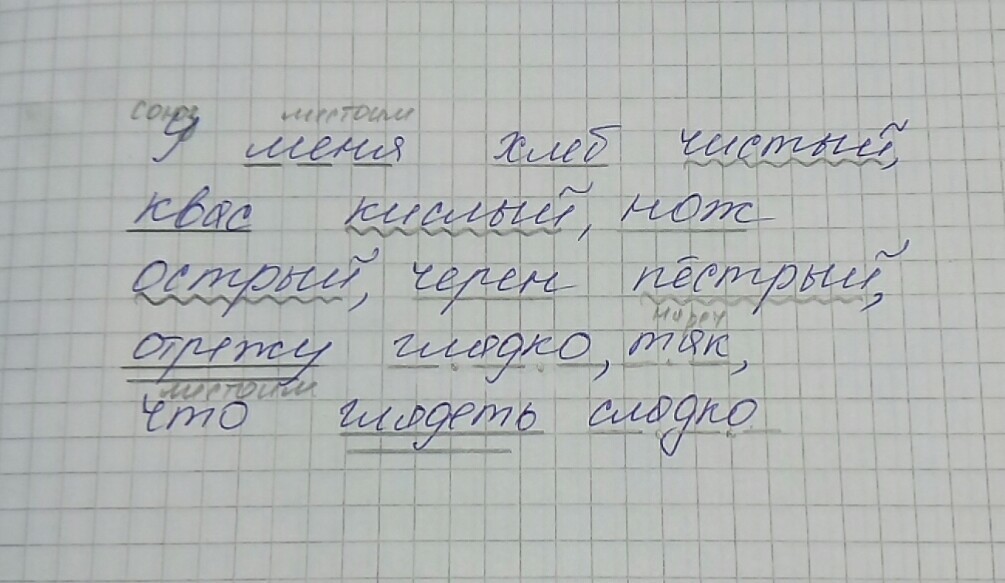 союз местоим
У меня хлеб чистый,
квас кислый, нож
острый, черен пёстрый,
нареч
отрежу гладко, так,
местоим
что глядеть сладко